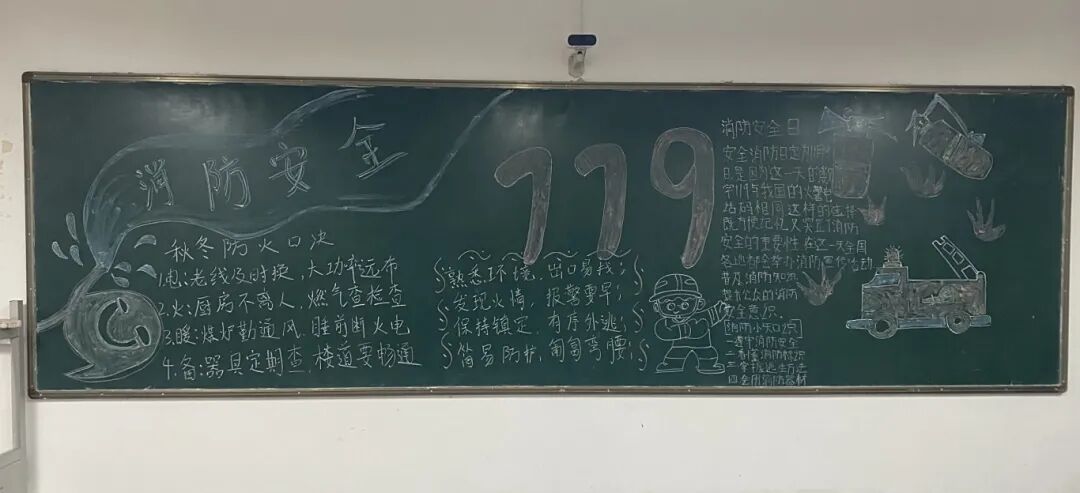 消防安全
秋冬防火口决
1.电:老线及时换,大功率远布
2.火:厨房不离人,燃气查检查
3.暖:煤炉勤通风.睡前断火电
4.备:器具定期查.楼道要畅通
119
熟悉环境,出口易找;
发现火情,报警要早;
保持镇定,有序外逃;
简易防护,匍匐弯腰;
消防安全日
安全消防日定别
日是因为这一天的数
字119与我国的火警电
话码相同这样的选择
既方便记忆又突出了消防
安全的重要性在这一天全国
各地都会举办消防宣传活动
普及消防知识
公众的消防
安全意识
消防小知识
一遵守消防安全
二消防标识
三掌握逃生方法
四会用消防器材